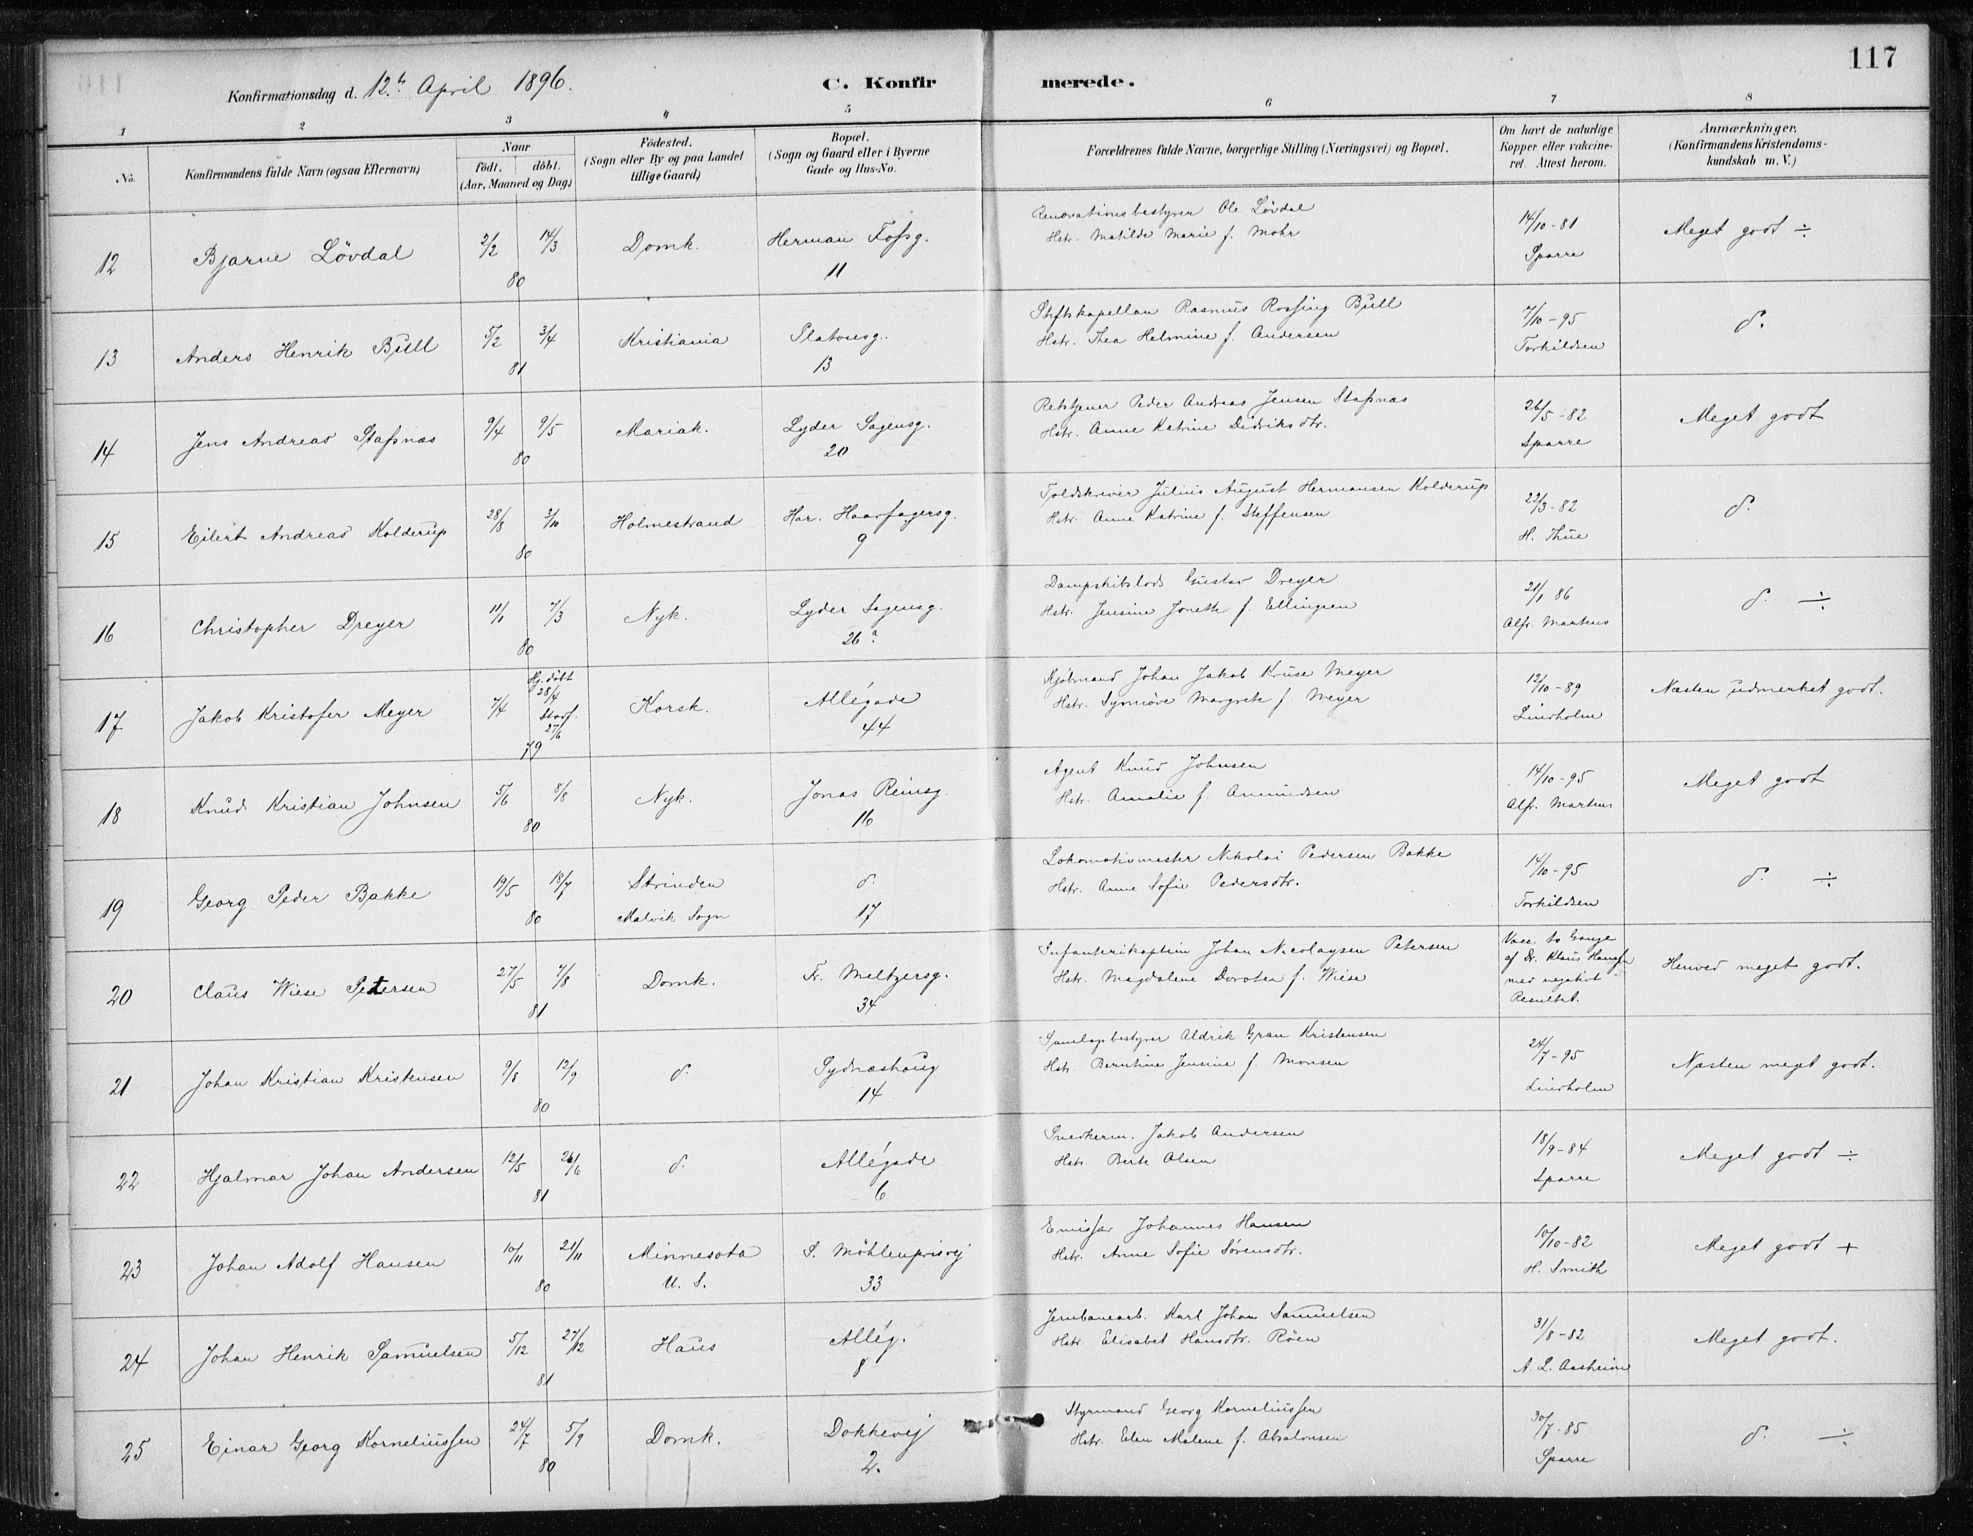 117
Konfirmationsdag d. 12te April 1896.
C. Konfirmerede.
1 2 3 4 5 6 7 8
No.
Konfirmandens fulde Navn (ogsaa Efternavn)
Naar
födt. döbt.
(Aar, Maaned og Dag.)
Födested.
(Sogn eller By og paa Landet
tillige Gaard)
Bopæl.
(Sogn og Gaard eller i Byerne
Gade og Hus-No.
Forældrenes fulde Navne, borgerlige Stilling (Næringsvei) og Bopæl.
Om havt de naturlige
Kopper eller vakcine-
ret. Attest herom.
Anmærkninger.
(Konfirmandens Kristendoms-
kundskab m. V.)
12 Bjarne Løvdal 2/2 14/3 80 Domk. Herman Fossg. 11
Renovationsbestyrer Ole Løvdal
Hstr. Matilde Marie f. Mohr
14/10-81 Sparre
Meget godt ÷
13 Anders Henrik Bull 5/2 3/4 81 Kristiania Platousg. 13
Stiftskapellan Rasmus Rossing Bull
Hstr. Thea Helmine f. Andersen
7/10-95 Torkildsen
d.
14 Jens Andreas Stafsnæs 9/4 9/5 80 Mariak. Lyder Sagensg. 20
Retstjener Peder Andreas Jensen Stafsnæs
Hstr. Anne Katrine Didriksdtr.
26/5-82 Sparre
Meget godt
15 Eilert Andreas Kolderup 28/8 3/10 80 Holmestrand Har. Haarfagersg. 9
Toldskriver Julius August Hermansen Kolderup
Hstr. Anne Katrine f. Steffensen
22/3-82 H. Thue
d.
16 Christopher Dreyer 11/1 7/3 80 Nyk. Lyder Sagensg. 26a
Dampskibslods Gustav Dreyer
Hstr. Jensine Jonette f. Ellingsen
21/1 86 Alfr. Martens
d. ÷
17 Jakob Kristofer Meyer 7/4 Hj. døbt 28/4 Stadf. 27/6 79 Korsk. Allégade 44
Kjøbmand Johan Jakob Kruse Meyer
Hstr. Synnøve Margrete f. Meyer
12/10-89 Lindholm
Næsten udmerket godt.
18 Knud Kristian Johnsen 5/6 8/8 80 Nyk. Jonas Reinsg. 16
Agent Knud Johnsen
Hstr. Amalie f. Amundsen
14/10-95 Alfr. Martens
Meget godt
19 Georg Peder Bakke 19/5 18/7 80 Strinden Malvik Sogn d. 17
Lokomotivmester Nikolai Pedersen Bakke
Hstr. Anne Sofie Pedersdtr.
14/10-95 Torkildsen
d. ÷
20 Claus Wiese Petersen 27/5 7/8 81 Domk. Fr. Meltzersg. 34
Infanterikaptein Johan Nicolaysen Petersen
Hstr. Magdalene Dorotea f. Wiese
Vacc. to Gange
af Dr. Klaus Hansen
med negativt
Resultat.
Henved meget godt.
21 Johan Kristian Kristensen 9/8 12/9 80 d. Sydnæshaug 14
Samlagsbestyrer Aldrik Gran Kristensen
Hstr. Berntine Jensine f. Monsen
24/7-95 Lindholm
Næsten meget godt.
22 Hjalmar Johan Andersen 12/5 26/6 81 d. Allégade 6
Snedkerm. Jakob Andersen
Hstr. Berte Olsen
18/9-84 Sparre
Meget godt ÷
23 Johan Adolf Hansen 10/11 21/11 80 Minnesota U. S. S. Möhlenprisvej 33
Emissær Johannes Hansen
Hstr. Anne Sofie Sörensdtr.
10/10-82 H. Smith
Meget godt +
24 Johan Henrik Samuelsen 5/12 27/12 81 Haus Allég. 8
Jernbanearb. Karl Johan Samuelsen
Hstr. Elisabet Hansdtr. Röen
31/8-82 A. L. Aasheim
Meget godt.
25 Einar Georg Korneliussen 24/7 5/9 80 Domk. Dokkevej 2.
Styrmand Georg Korneliussen
Hstr. Elen Malene f. Absalonsen
30/7-85 Sparre
d. ÷